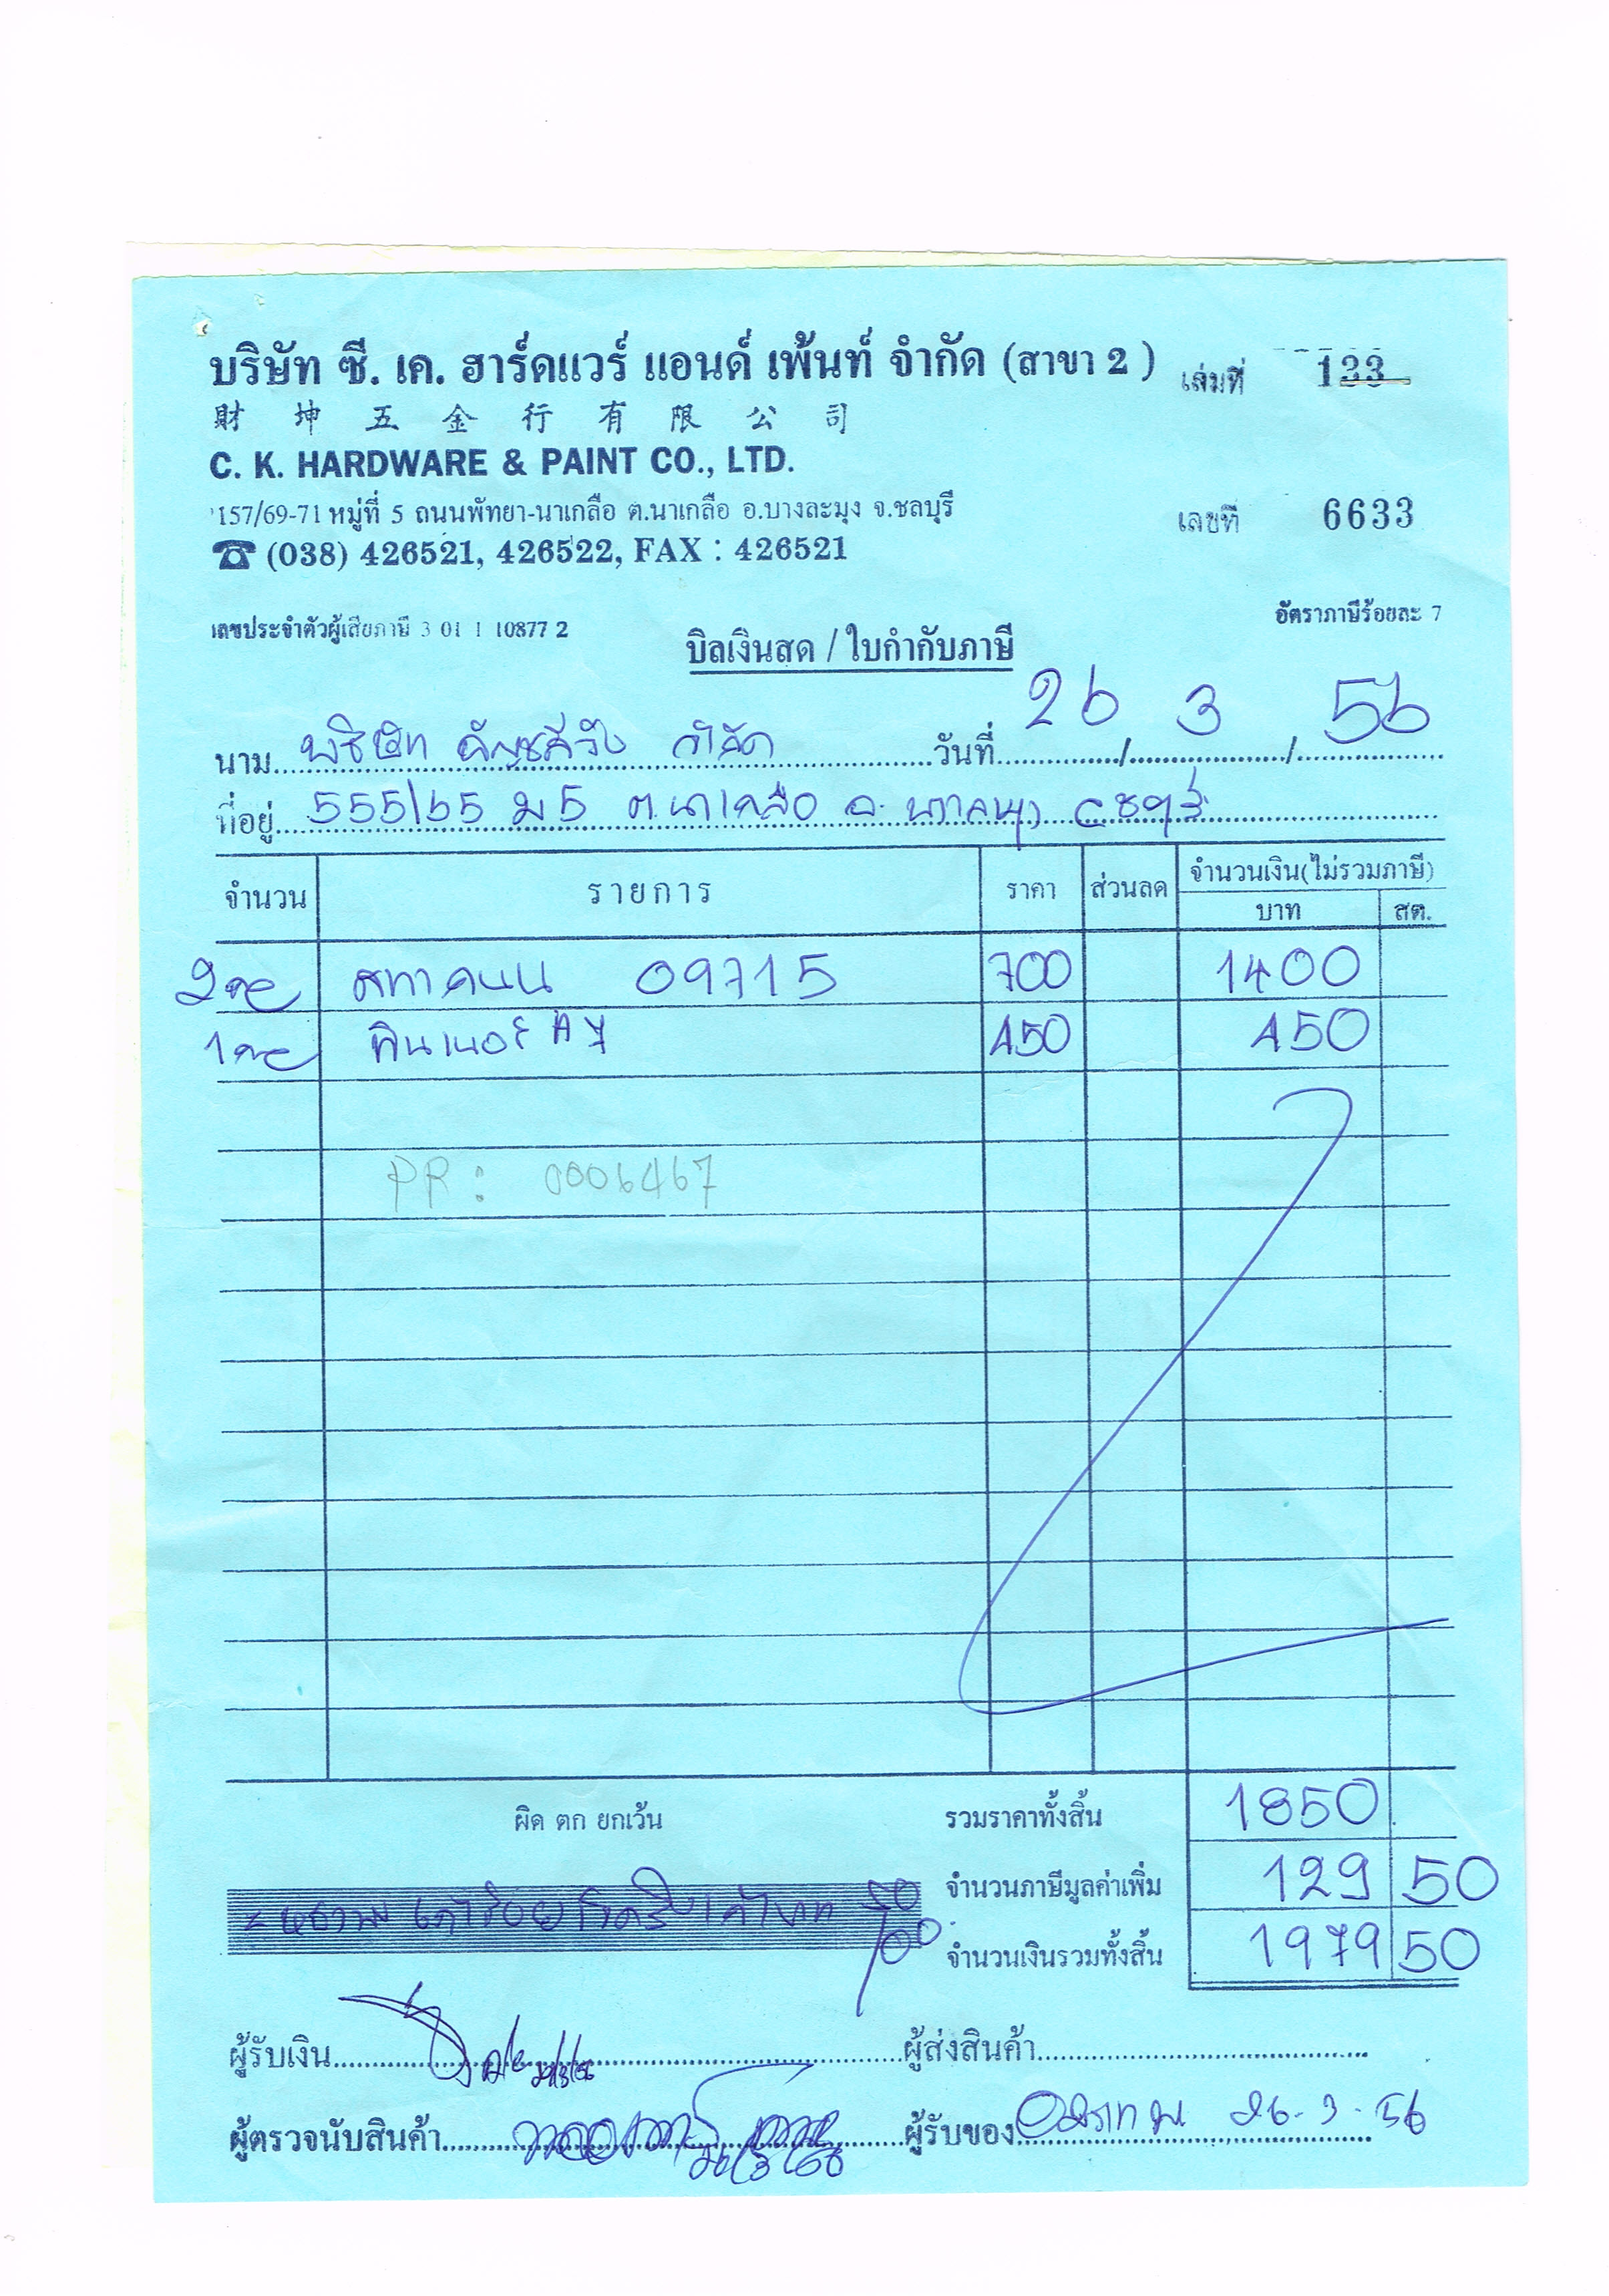 บริษัท ซี. เค. ฮาร์ดแวร์ แอนด์ เพ้นท์ จำกัด (สาขา 2 ) เล่มที่ 133
財 坤 五 金 行 有 限 公 司
C. K. HARDWARE & PAINT CO., LTD.
157/69-71 หมู่ที่ 5 ถนนพัทยา-นาเกลือ ต.นาเกลือ อ.บางละมุง จ.ชลบุรี เลขที่ 6633
☎ (038) 426521, 426522, FAX : 426521
เลขประจำตัวผู้เสียภาษี 3 01 1 10877 2 อัตราภาษีร้อยละ 7
บิลเงินสด / ใบกำกับภาษี
นาม บริษัท จำกัด วันที่ 26 / 3 / 56
ที่อยู่ 555/65 ม 5 ต.นาเกลือ อ. ชลบุรี
จำนวน รายการ ราคา ส่วนลด จำนวนเงิน(ไม่รวมภาษี)
บาท สต.
2 สีทาถนน 09715 700 1400
1 ทินเนอร์ 450 450
PR : 0006467
ผิด ตก ยกเว้น รวมราคาทั้งสิ้น 1850
จำนวนภาษีมูลค่าเพิ่ม 129 50
= หนึ่งพันเก้าร้อยเจ็ดสิบเก้าบาท 50/100 จำนวนเงินรวมทั้งสิ้น 1979 50
ผู้รับเงิน ผู้ส่งสินค้า
ผู้ตรวจนับสินค้า 26/3/56 ผู้รับของ 26-3-56